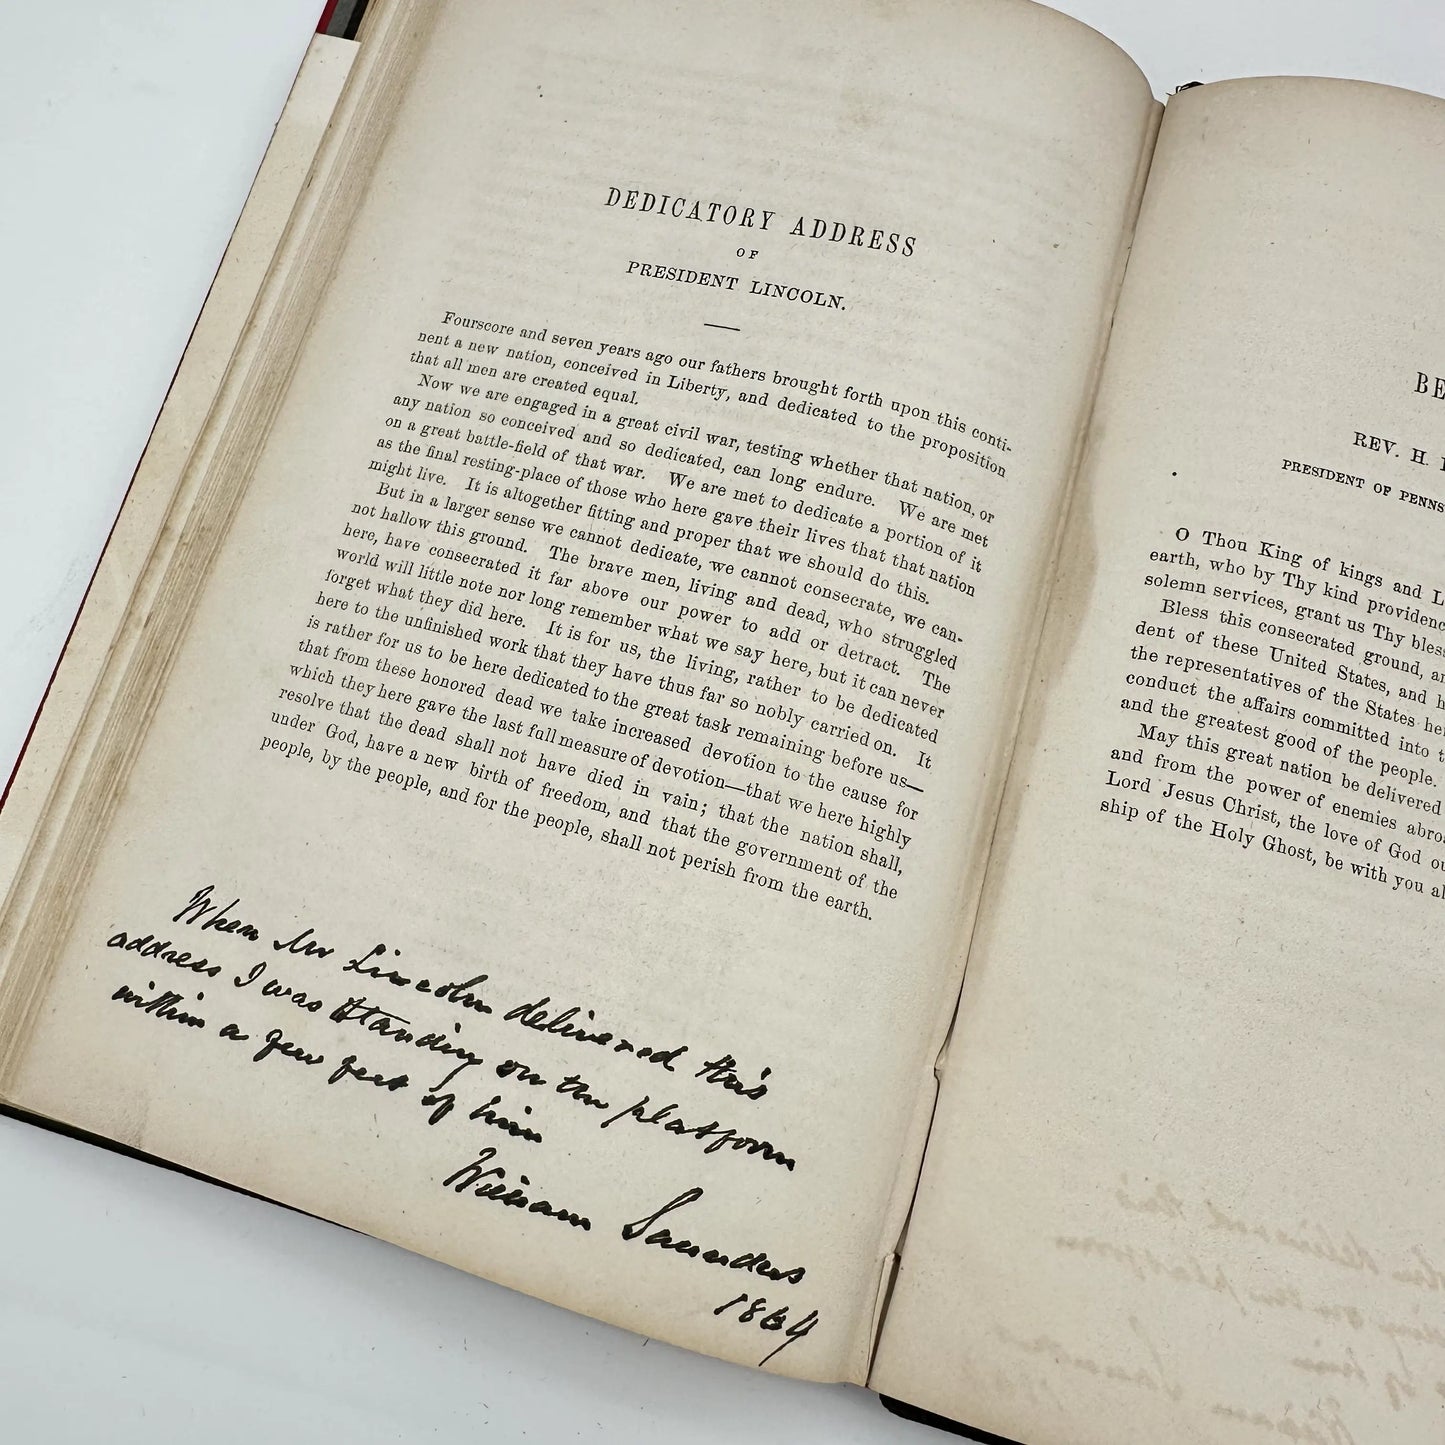 DEDICATORY ADDRESS
OF
PRESIDENT LINCOLN.
Fourscore and seven years ago our fathers brought forth upon this conti-
nent a new nation, conceived in Liberty, and dedicated to the proposition
that all men are created equal.
Now we are engaged in a great civil war, testing whether that nation, or
any nation so conceived and so dedicated, can long endure. We are met
on a great battle-field of that war. We are met to dedicate a portion of it
as the final resting-place of those who here gave their lives that that nation
might live. It is altogether fitting and proper that we should do this.
But in a larger sense we cannot dedicate, we cannot consecrate, we can-
not hallow this ground. The brave men, living and dead, who struggled
here, have consecrated it far above our power to add or detract. The
world will little note nor long remember what we say here, but it can never
forget what they did here. It is for us, the living, rather to be dedicated
here to the unfinished work that they have thus far so nobly carried on. It
is rather for us to be here dedicated to the great task remaining before us—
that from these honored dead we take increased devotion to the cause for
which they here gave the last full measure of devotion—that we here highly
resolve that the dead shall not have died in vain; that the nation shall,
under God, have a new birth of freedom, and that the government of the
people, by the people, and for the people, shall not perish from the earth.
When Mr Lincoln delivered this
address I was standing on the platform
within a few feet of him
William Saunders
1864
BE
REV. H.
PRESIDENT OF PENNS
O Thou King of kings and L
earth, who by Thy kind providenc
solemn services, grant us Thy bless
Bless this consecrated ground, an
dent of these United States, and h
the representatives of the States her
conduct the affairs committed into t
and the greatest good of the people.
May this great nation be delivered
and from the power of enemies abro
Lord Jesus Christ, the love of God ou
ship of the Holy Ghost, be with you al